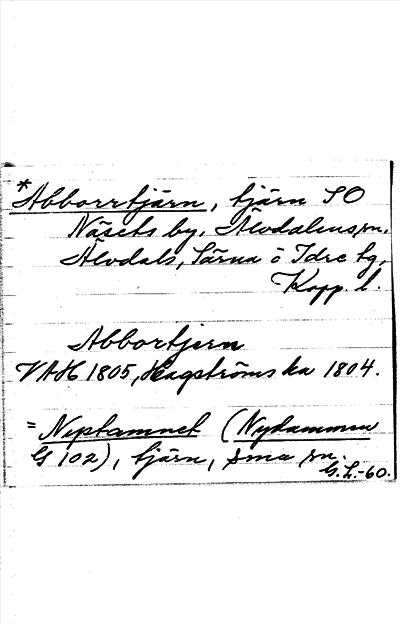 *Abborrtjärn, tjärn SO
Näsets by, Älvdalens sn,
Älvdals, Särna o Idre tg,
Kopp. l.
Abbortjern
VAH 1805, Hagströms ka 1804.
= Neptamnet (Nydammen
G 102), tjärn, sma sn.
G. L.-60.